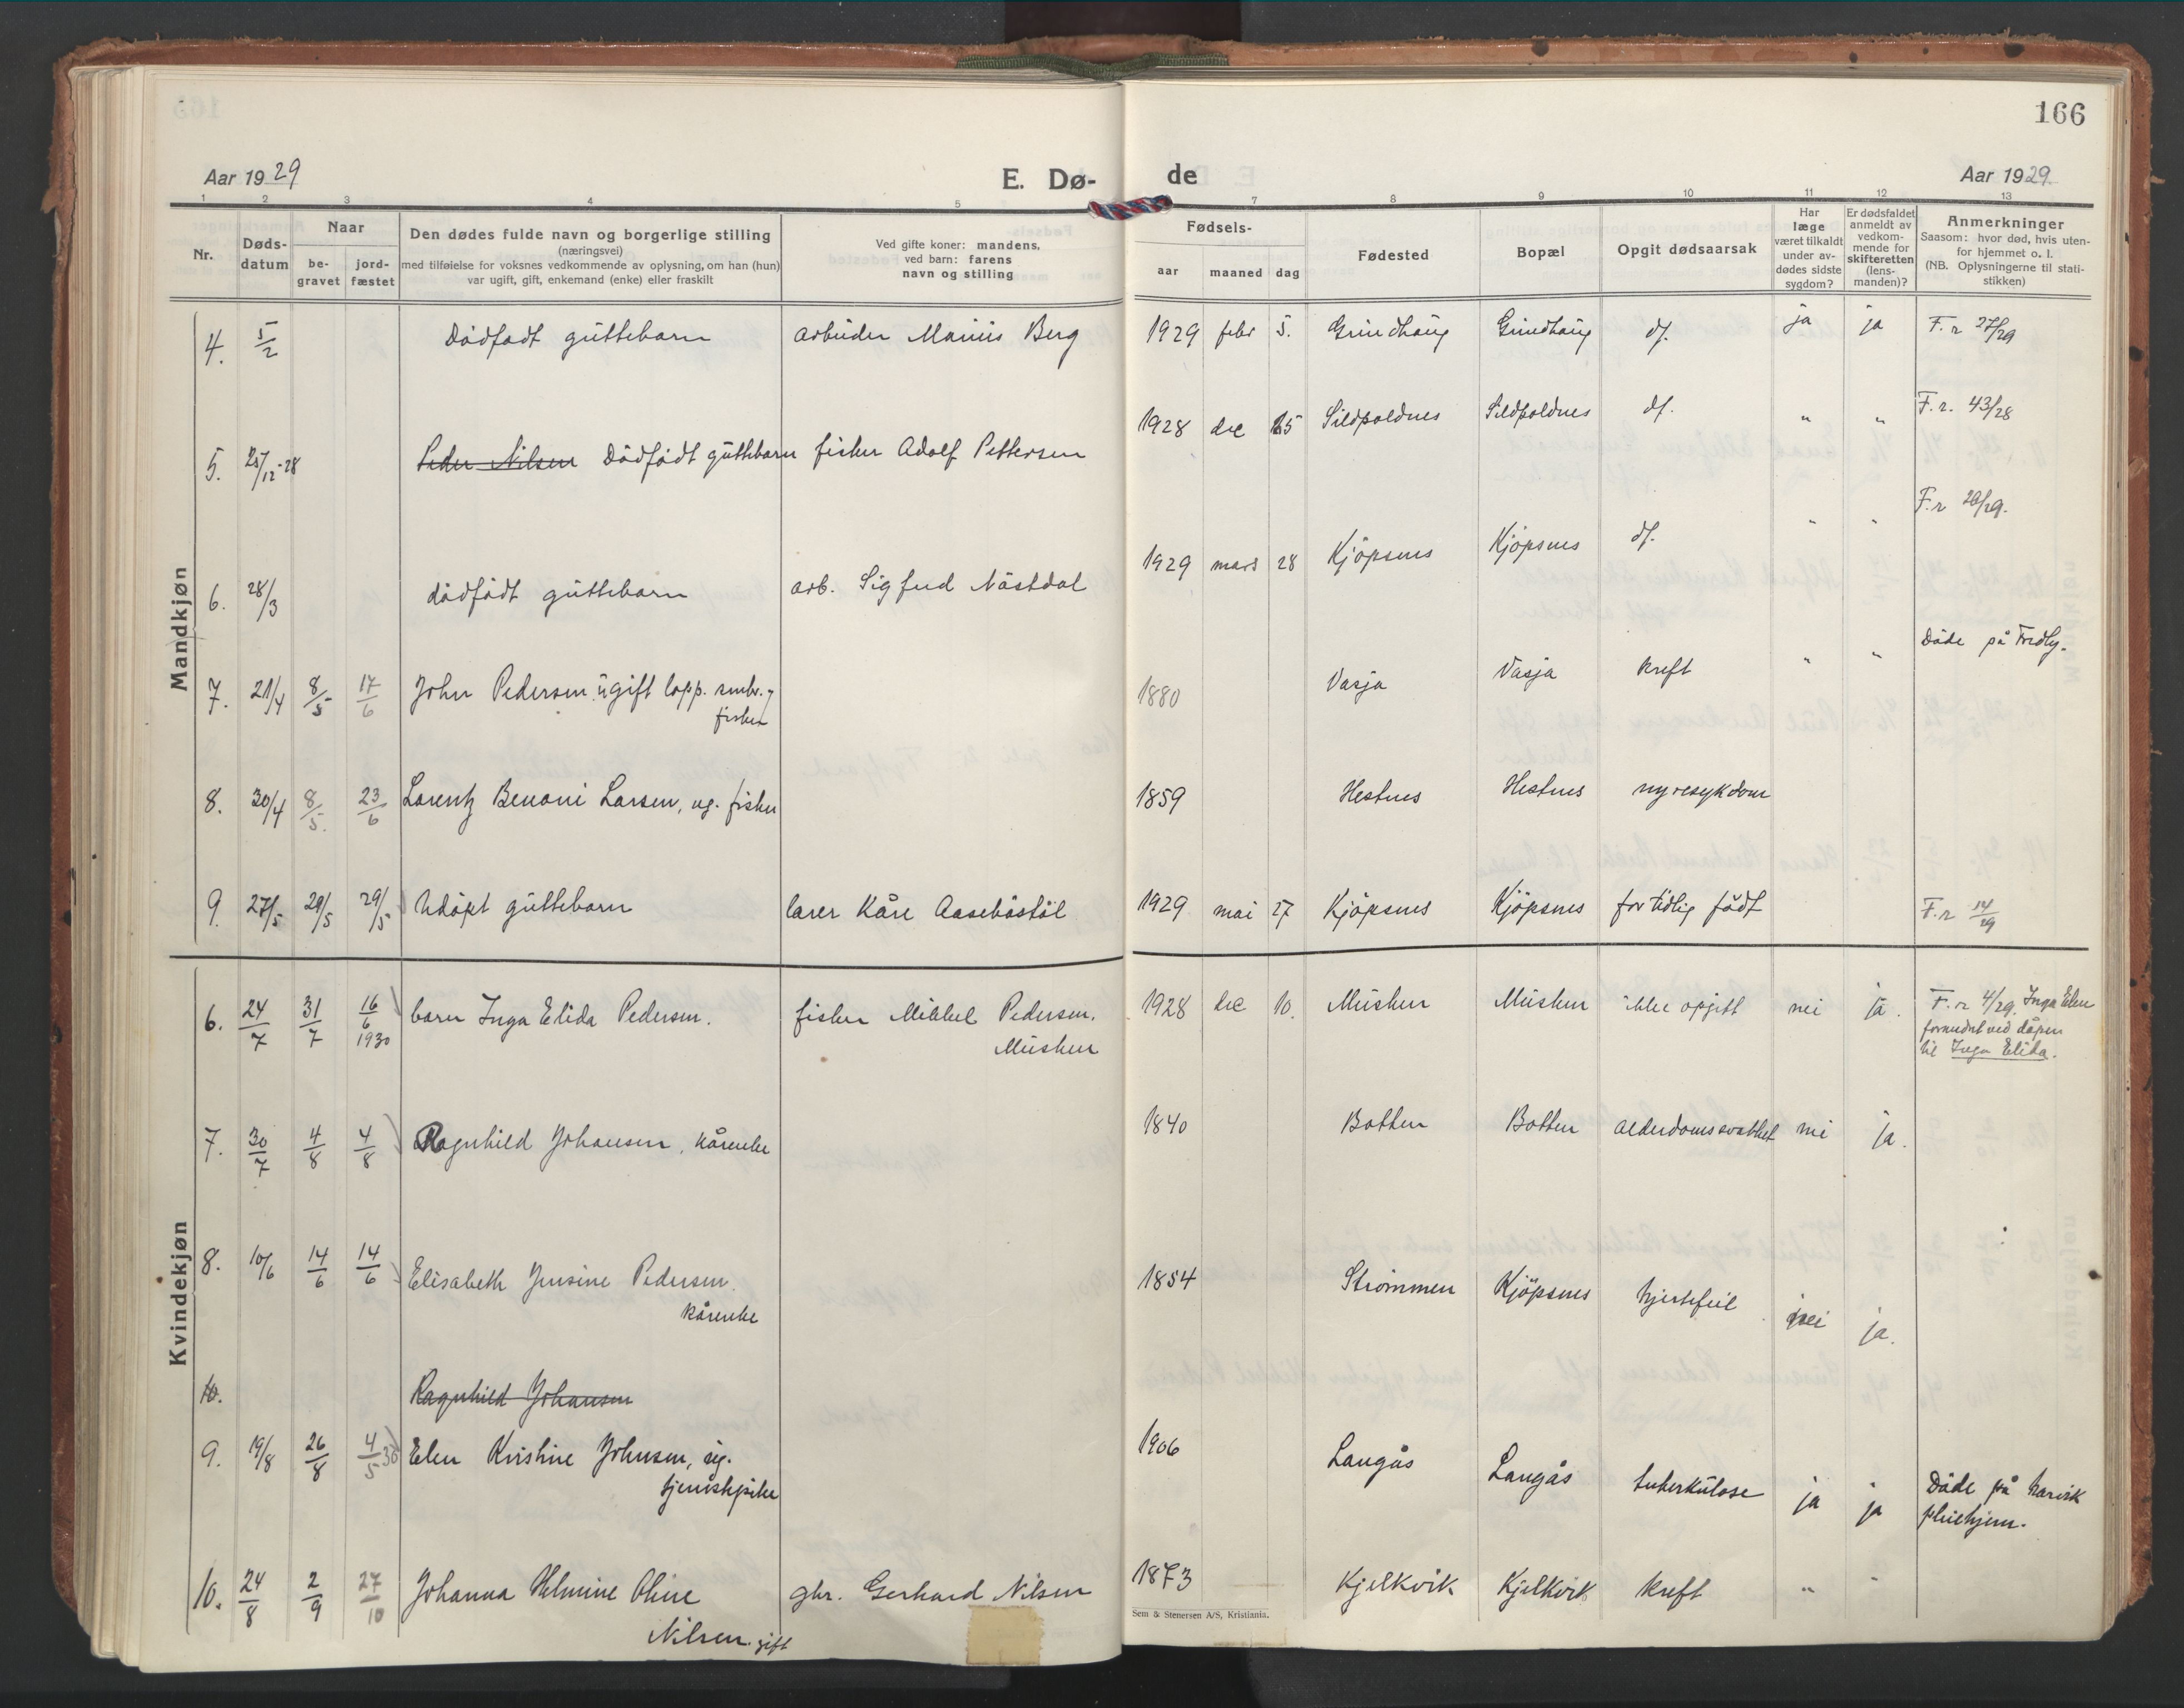 166
Aar 1929
E. Dø-
de
Aar 1929.
1 2 3 4 5 7 8 9 10 11 12 13
Nr.
Døds-
datum
Naar
be-
gravet
jord-
fæstet
Den dødes fulde navn og borgerlige stilling
(næringsvei)
med tilføielse for voksnes vedkommende av oplysning, om han (hun)
var ugift, gift, enkemand (enke) eller fraskilt
Ved gifte koner: mandens,
ved barn: farens
navn og stilling
Fødsels-
aar
maaned
dag
Fødested
Bopæl
Opgit dødsaarsak
Har
læge
været tilkaldt
under av-
dødes sidste
sygdom?
Er dødsfaldet
anmeldt av
vedkom-
mende for
skifteretten
(lens-
manden)?
Anmerkninger
Saasom: hvor død, hvis uten-
for hjemmet o. l.
(NB. Oplysningerne til stati-
stikken)
Mandkjøn
4. 5/2 Dödfödt guttebarn arbeider Marius Berg 1929 febr 5. Grindhaug Grindhaug df. ja ja F. r 27/29
5. 25/12-28 Peder Nilsen Dödfödt guttebarn fisker Adolf Pettersen 1928 dec 25 Sildpoldnes Sildpoldnes df. " " F. r. 43/28
6. 28/3 dödfödt guttebarn arb. Sigfred Nästdal 1929 mars 28 Kjöpsnes Kjöpsnes df. " " F. r 20/29.
7. 21/4 8/5 17/6 John Pedersen ugift lapp. smbr. &
fisker
1880 Vasja Vasja kreft " " Döde på Fredly.
8. 30/4 8/5. 23/6 Lorentz Benoni Larsen, ug. fisker 1859 Hestnes Hestnes nyresykdom
9. 27/5 29/5 29/5 Udöpt guttebarn lærer Kåre Aaseböstöl 1929 mai 27 Kjöpsnes Kjöpsnes for tidlig födt F. r 14/29
Kvindekjøn
6. 24/7 31/7 16/6 1930 barn Inga Elida Pedersen. fisker Mikkel Pedersen.
Musken
1928 dec 10. Musken Musken ikke opgitt nei ja. F. r 4/29. Inga Elen
forandret ved dåpen
til Inga Elida.
7. 30/7 4/8 4/8 Ragnhild Johansen, kårenke 1840 Botten Botten alderdomssvakhet nei ja.
8. 10/6 14/6 14/6 Elisabeth Jensine Pedersen.
kårenke
1854 Strömmen Kjöpsnes hjertefeil nei ja.
10. Ragnhild Johansen
9. 19/8 26/8 4/5 30 Elen Kristine Johnsen, ug.
tjenestepike
1906 Langås Langås tuberkulose ja ja Döde på Narvik
pleiehjem.
10. 24/8 2/9 27/10 Johanna Helmine Oline
Nilsen. gift
gbr. Gerhard Nilsen 1873 Kjelkvik Kjelkvik kreft " "
Sem & Stenersen A/S, Kristiania.